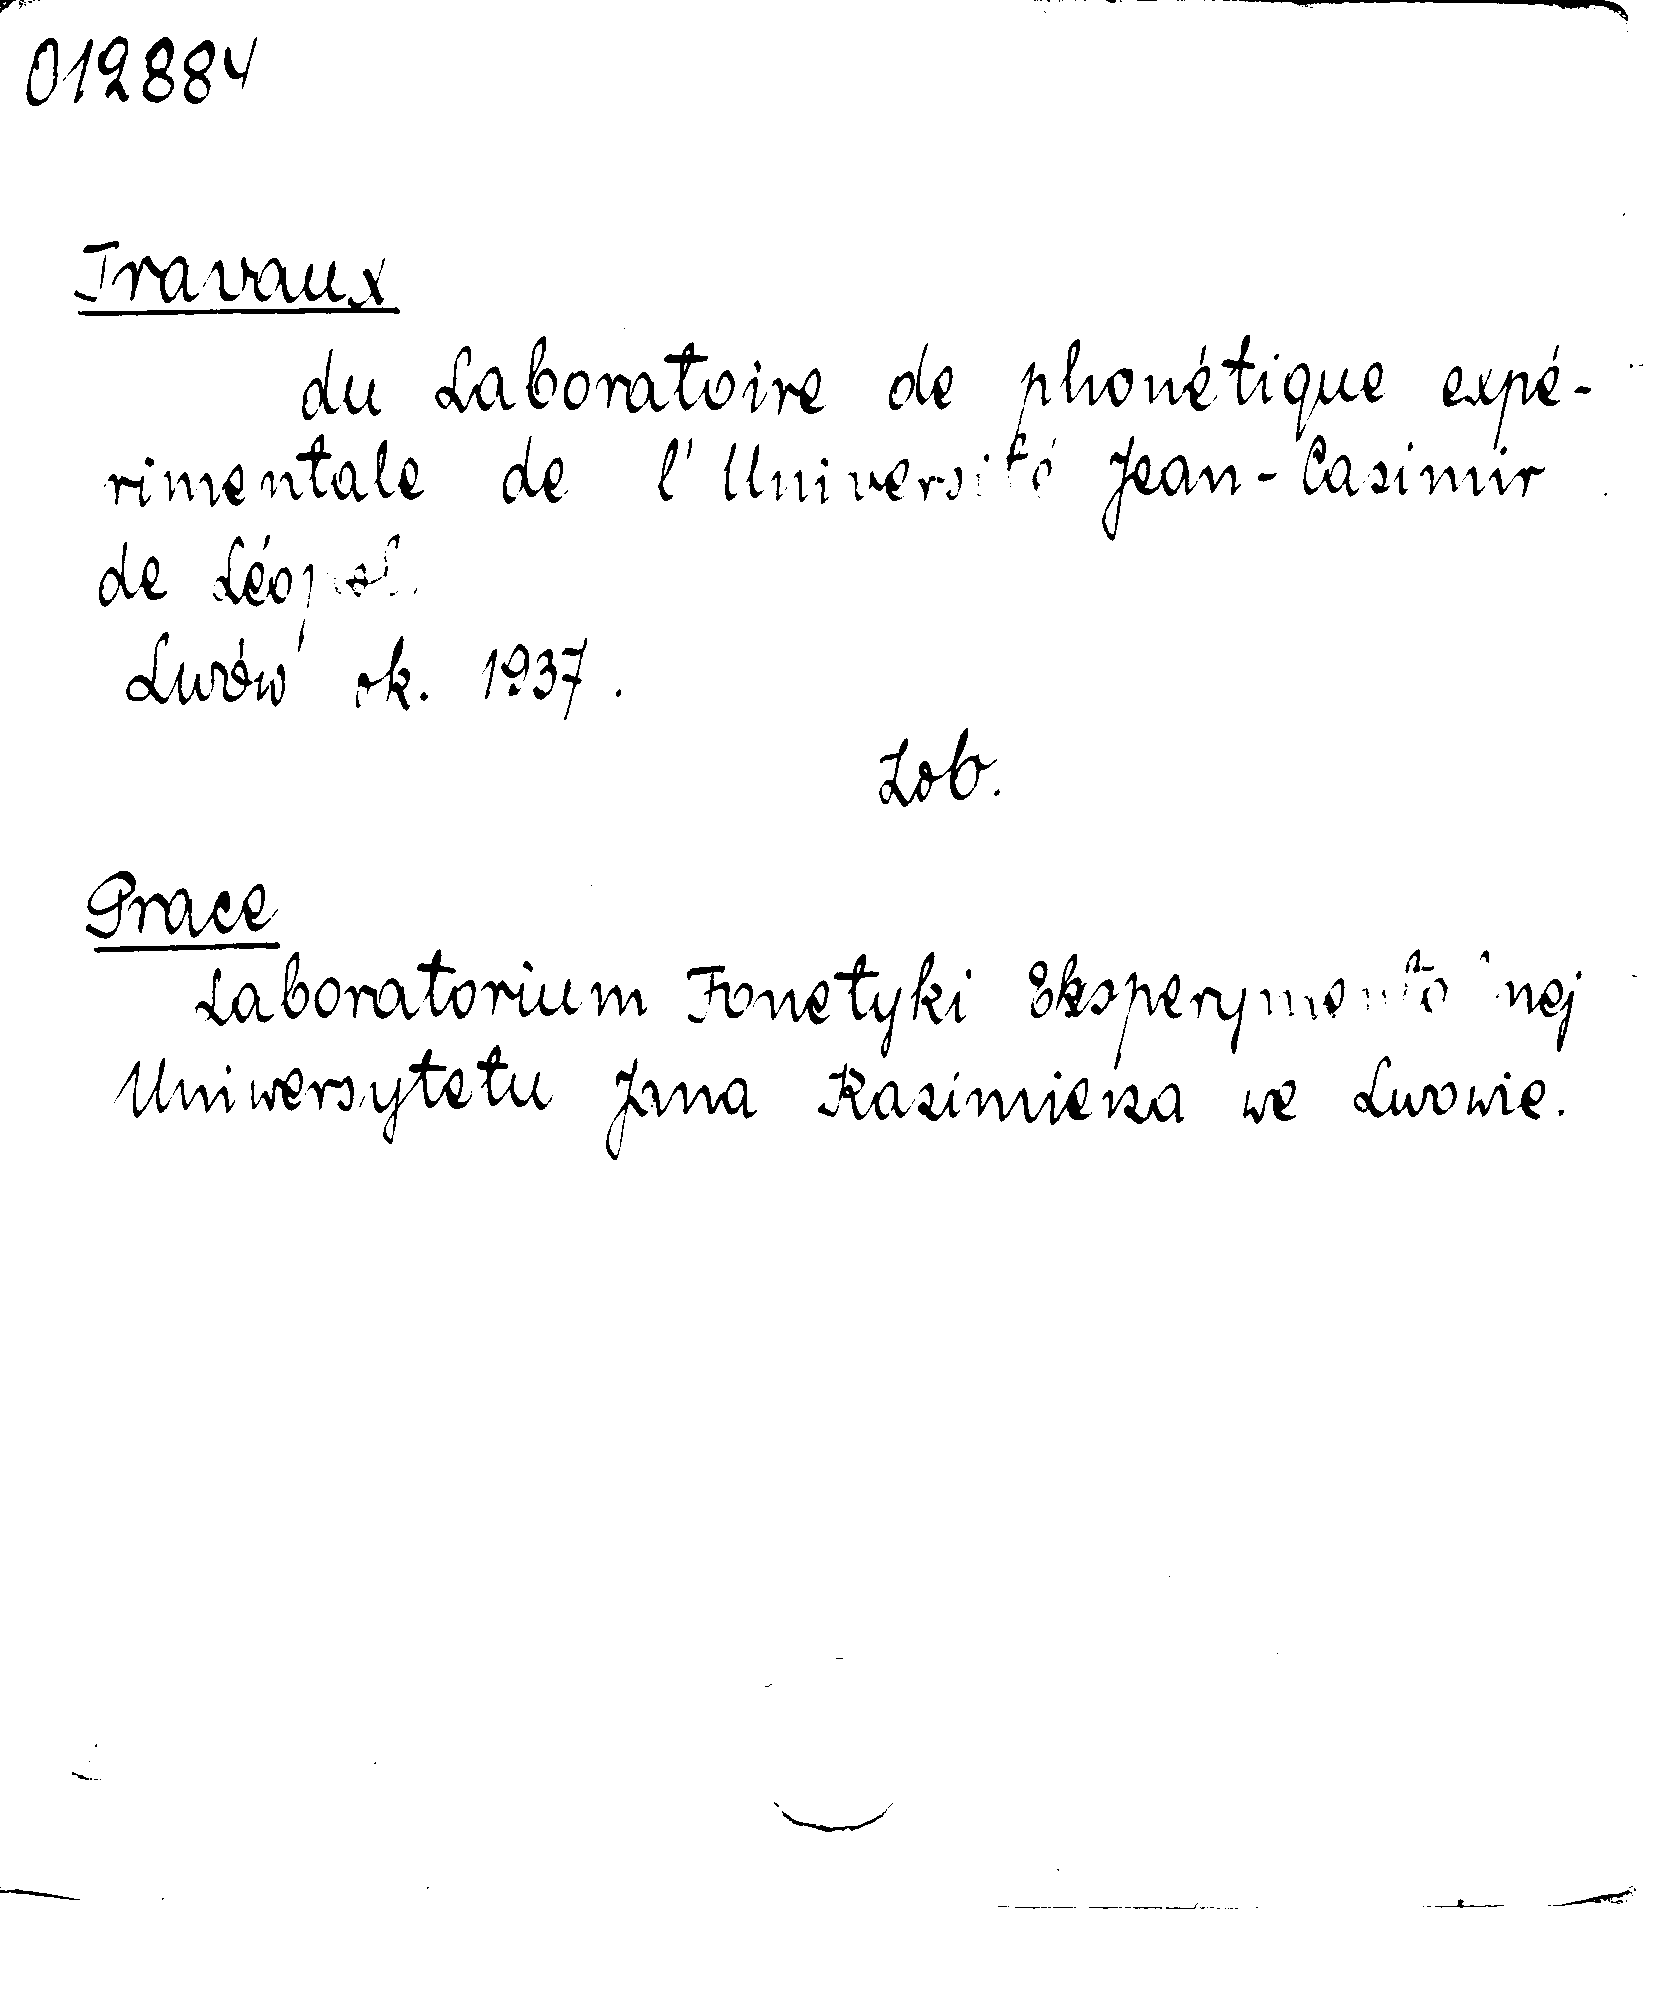 012884
Travaux
du Laboratoire de phonétique expé-
rimentale de l'Université Jean-Casimir
de Léopol.
Lwów ok. 1937.
Zob.
Prace
Laboratorium Fonetyki Eksperymentalnej
Uniwersytetu Jana Kazimierza we Lwowie.